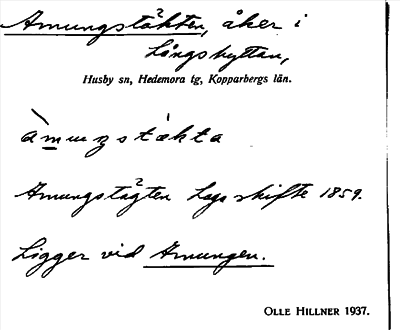 Amungstäkten, åker i
Långshyttan,
Husby sn, Hedemora tg, Kopparbergs län.
Amungstägten Laga skifte 1859.
Ligger vid Amungen.
OLLE HILLNER 1937.